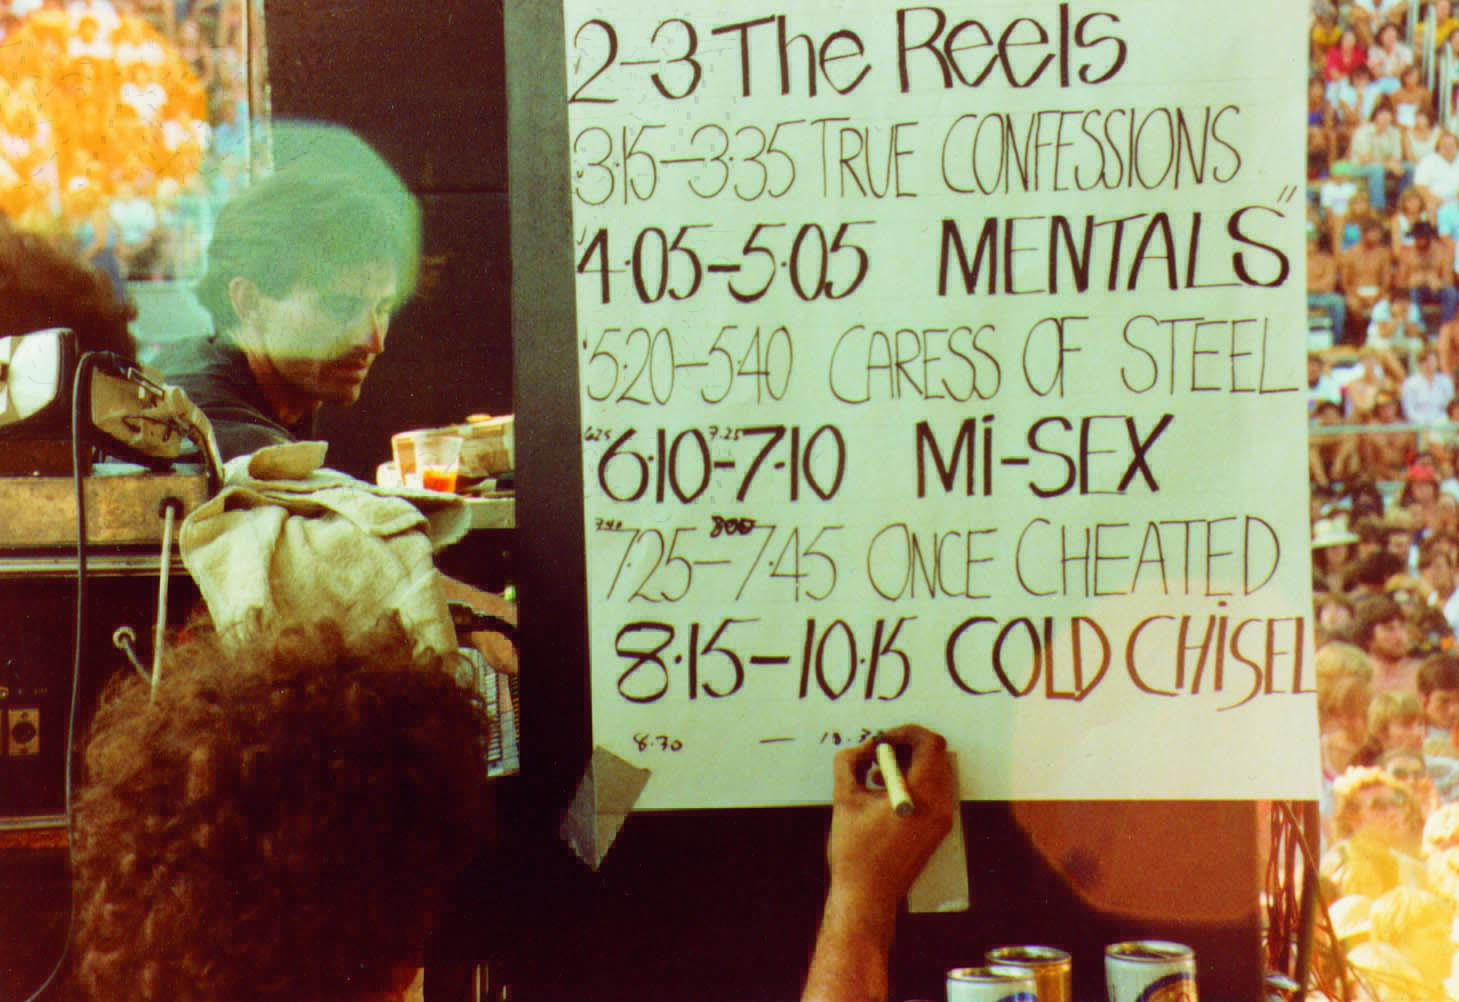 2-3 The Reels
3.15-3.35 TRUE CONFESSIONS
4.05-5.05 MENTALS"
5.20-5.40 CARESS OF STEEL
6.25 7.25
6.10-7.10 Mi-SEX
7.40 800
7.25-7.45 ONCE CHEATED
8.15-10.15 COLD CHiSEL
8.30 — 10.30